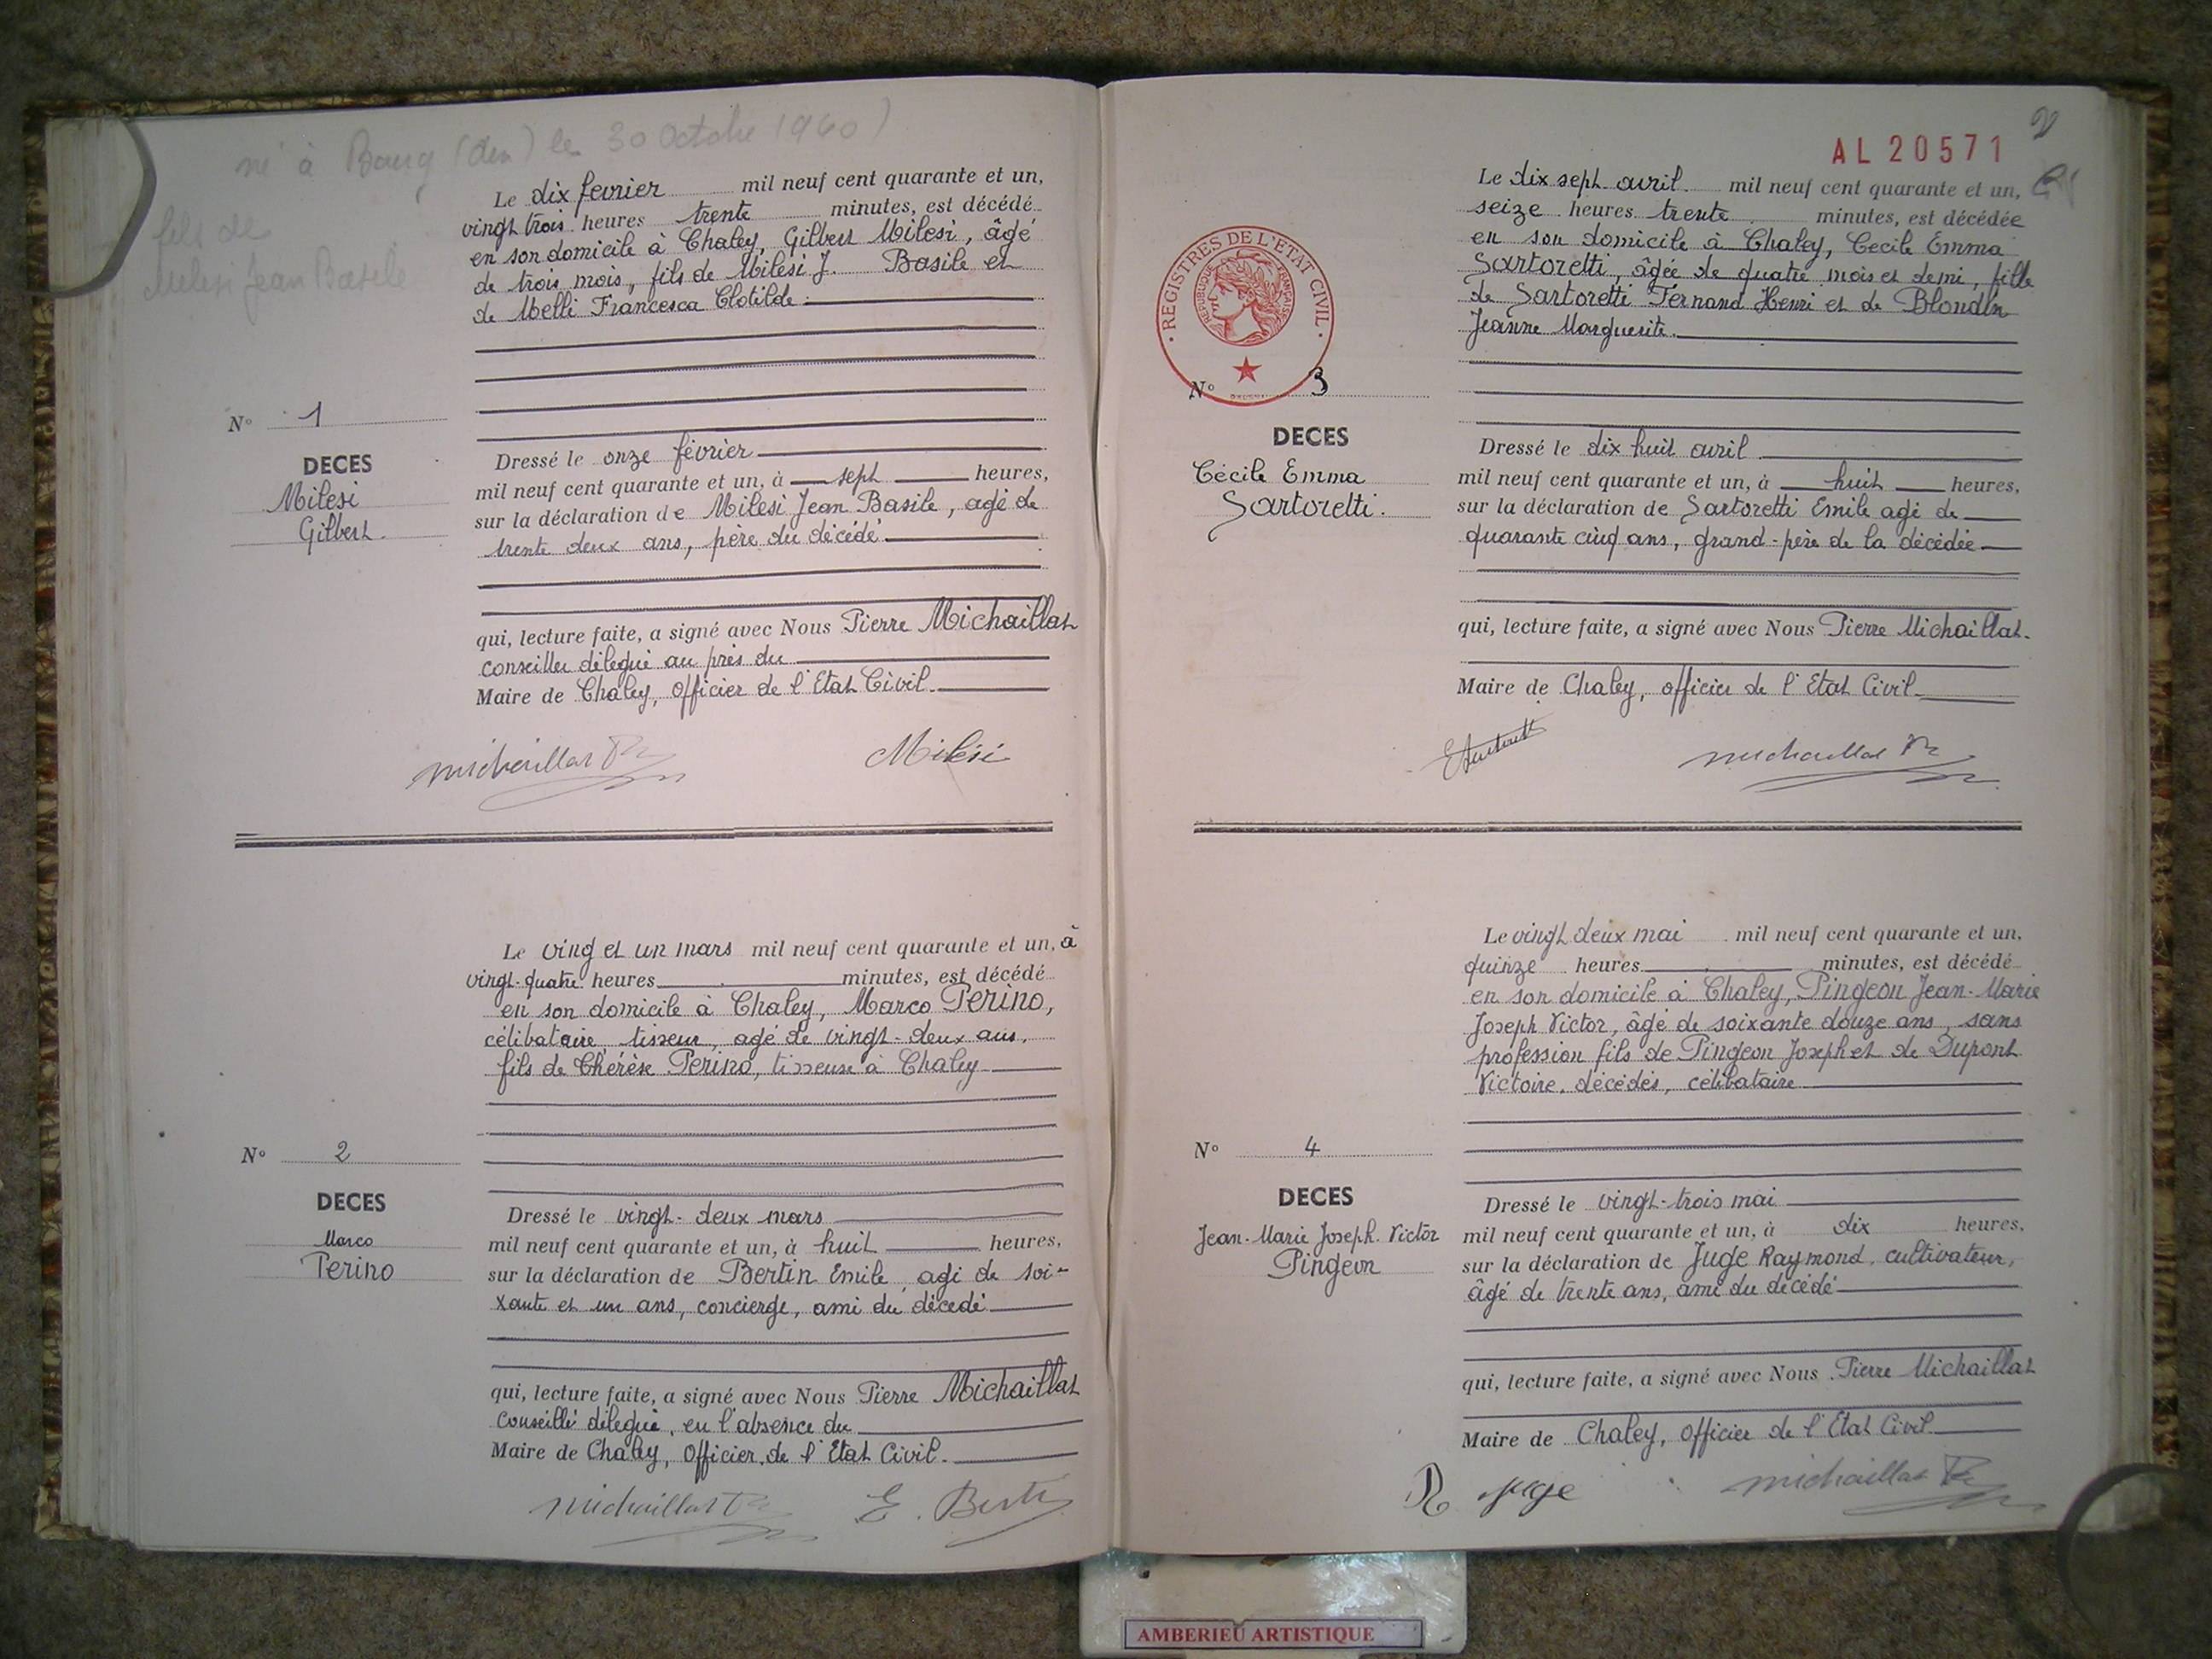 né à Bourg (Ain) le 30 Octobre 1940)
fils de
Milesi Jean Basile
Le dix fevrier mil neuf cent quarante et un,
vingt trois heures trente minutes, est décédé
en son domicile à Chaley, Gilbert Milesi, âgé
de trois mois, fils de Milesi J. Basile et
de Melli Francesca Clotilde.
N° 1
DECES
Milesi
Gilbert.
Dressé le onze février
mil neuf cent quarante et un, à sept heures,
sur la déclaration de Milesi Jean Basile, agé de
trente deux ans, père du décédé
qui, lecture faite, a signé avec Nous Pierre Michaillat
conseiller délegué au près du
Maire de Chaley, officier de l'Etat Civil.
michaillat Pre
Milési
Le ving et un mars mil neuf cent quarante et un, à
vingt-quatre heures minutes, est décédé
en son domicile à Chaley, Marco Perino,
célibataire, tisseur, agé de vingt-deux ans,
fils de Thérèse Perino, tisseuse à Chaley
N° 2
DECES
Marco
Perino
Dressé le vingt-deux mars
mil neuf cent quarante et un, à huit heures,
sur la déclaration de Bertin Emile, agé de soi-
xante et un ans, concierge, ami du décedé
qui, lecture faite, a signé avec Nous Pierre Michaillat
Conseillé délegué, en l'absence du
Maire de Chaley, Officier de l'Etat Civil.
michaillat Pre
E. Bertin
2
AL20571
Le dix sept avril mil neuf cent quarante et un,
seize heures trente minutes, est décédée
en son domicile à Chaley, Cecile Emma
Sartoretti, âgée de quatre mois et demi, fille
de Sartoretti Fernand Henri et de Blondin
Jeanne Marguerite.
REGISTRES DE L'ETAT CIVIL
REPUBLIQUE FRANÇAISE
N° 3
DECES
Cécile Emma
Sartoretti.
Dressé le dix huit avril
mil neuf cent quarante et un, à huit heures,
sur la déclaration de Sartoretti Emile agé de
quarante cinq ans, grand-père de la décédée
qui, lecture faite, a signé avec Nous Pierre Michaillat.
Maire de Chaley, officier de l'Etat Civil
E Sartoretti
michaillat Pre
Le vingt deux mai mil neuf cent quarante et un,
quinze heures minutes, est décédé
en son domicile à Chaley, Pingeon Jean-Marie
Joseph Victor, âgé de soixante douze ans, sans
profession fils de Pingeon Joseph et de Dupont
Victoire, décédés, célibataire
N° 4
DECES
Jean-Marie Joseph. Victor
Pingeon
Dressé le vingt-trois mai
mil neuf cent quarante et un, à dix heures,
sur la déclaration de Juge Raymond, cultivateur,
âgé de trente ans, ami du décédé
qui, lecture faite, a signé avec Nous Pierre Michaillat
Maire de Chaley, Officier de l'Etat Civil
R Juge
michaillat Pre
AMBERIEU ARTISTIQUE